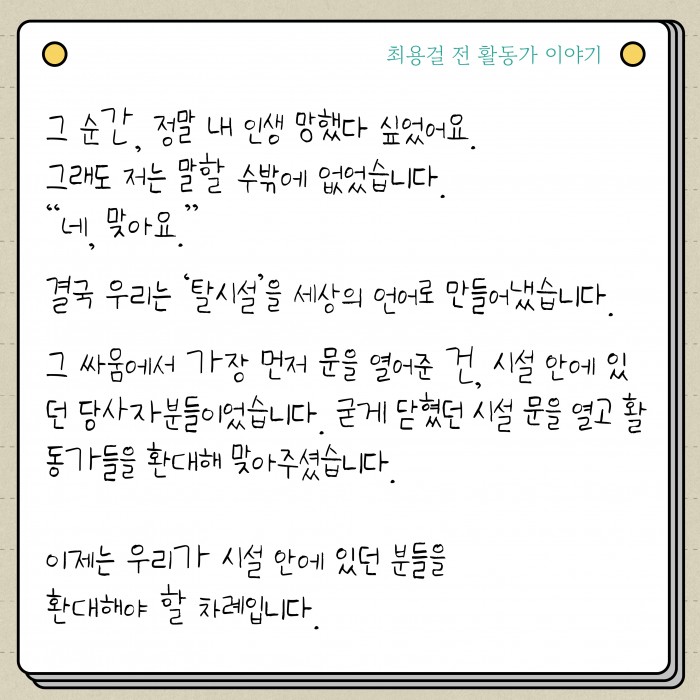 최용걸 전 활동가 이야기
그 순간, 정말 내 인생 망했다 싶었어요.
그래도 저는 말할 수밖에 없었습니다.
“네, 맞아요.”
결국 우리는 ‘탈시설’을 세상의 언어로 만들어냈습니다.
그 싸움에서 가장 먼저 문을 열어준 건, 시설 안에 있
던 당사자분들이었습니다. 굳게 닫혔던 시설 문을 열고 활
동가들을 환대해 맞아주셨습니다.
이제는 우리가 시설 안에 있던 분들을
환대해야 할 차례입니다.